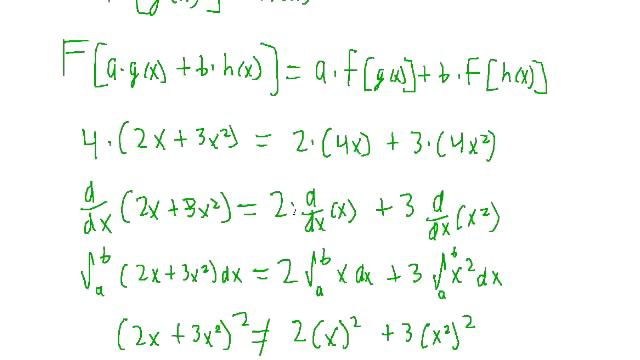 F[a·g(x) + b·h(x)] = a·f[g(x)] + b·F[h(x)]
4·(2x + 3x²) = 2·(4x) + 3·(4x²)
d/dx (2x + 3x²) = 2·d/dx(x) + 3 d/dx(x²)
∫ₐᵇ (2x + 3x²)dx = 2∫ₐᵇ x dx + 3∫ₐᵇ x² dx
(2x + 3x²)² ≠ 2(x)² + 3(x²)²